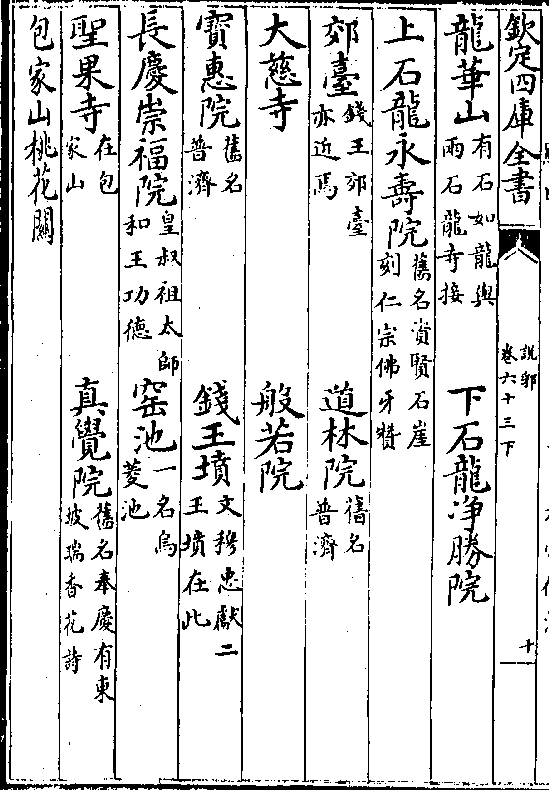 欽定四庫全書
說郛
卷六十三下
十
龍華山有石如龍與兩石龍寺接 下石龍净勝院
上石龍永壽院舊名資賢石崖刻仁宗佛牙贊
郊臺錢王郊臺亦近焉 道林院舊名普濟
大慈寺 般若院
寶惠院舊名普濟 錢王墳文穆忠獻二王墳在此
長慶崇福院皇叔祖太師和王功德 窑池一名烏菱池
聖果寺在包家山 真覺院舊名奉慶有東坡瑞香花詩
包家山桃花關